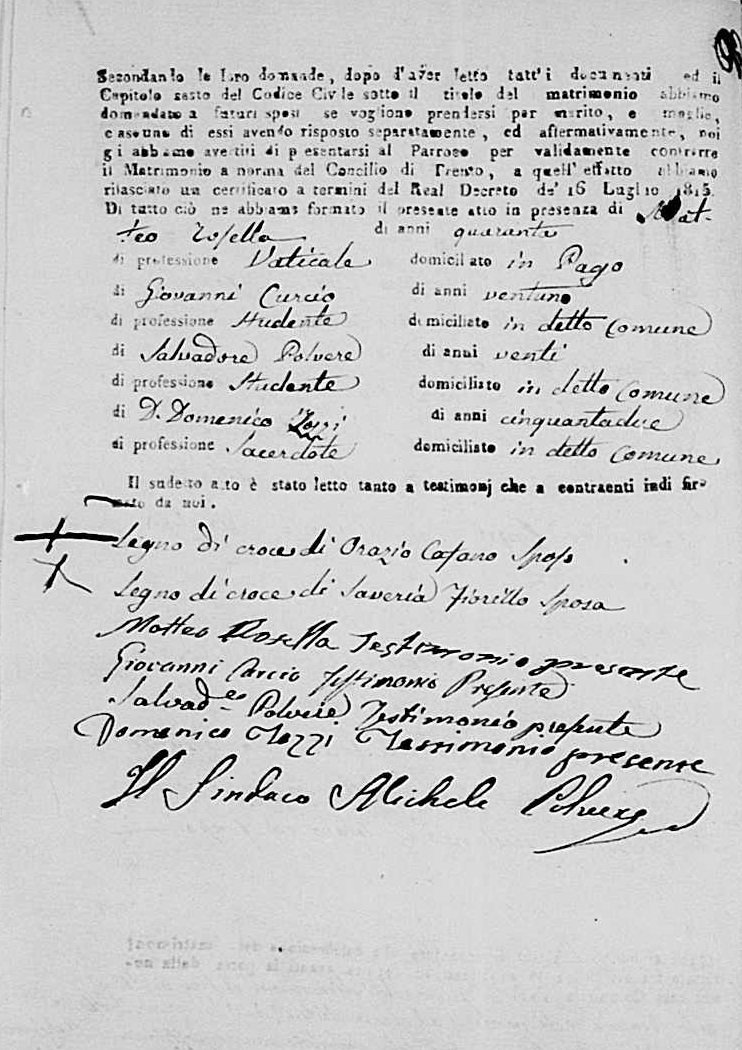 Secondando le loro domande, dopo d'aver letto tutt'i documenti ed il
Capitolo sesto del Codice Civile sotto il titolo del matrimonio abbiamo
domandato a futuri sposi se vogliono prendersi per marito, e moglie,
e ascuno di essi avendo risposto separatamente, ed affermativamente, noi
gi abbiamo avertiti di presentarsi al Parroco per validamente contrarre
il Matrimonio a norma del Concilio di Trento, a quell'effetto abbiamo
rilasciato un certificato a termini del Real Decreto de' 16 Luglio 1815.
Di tutto ciò ne abbiams formato il presente atto in presenza di Mat-
teo Rosella di anni quaranta
di professione Vaticale domiciliato in Pago
di Giovanni Curcio di anni ventuno
di professione Studente domiciliato in detto Comune
di Salvadore Polvere di anni venti
di professione Studente domiciliato in detto Comune
di D. Domenico Iozzi di anni cinquantadue
di professione Sacerdote domiciliato in detto Comune
Il sudetto atto è stato letto tanto a testimonj che a contraenti indi fir-
mato da noi.
Segno di croce di Orazio Catano Sposo
Segno di croce di Saveria Fiorillo Sposa
Matteo Rosella Testimonio presente
Giovanni Curcio Testimonio Presente
Salvad.e Polvere Testimonio presente
Domenico Iozzi Testimonio presente
Il Sindaco Michele Polvere